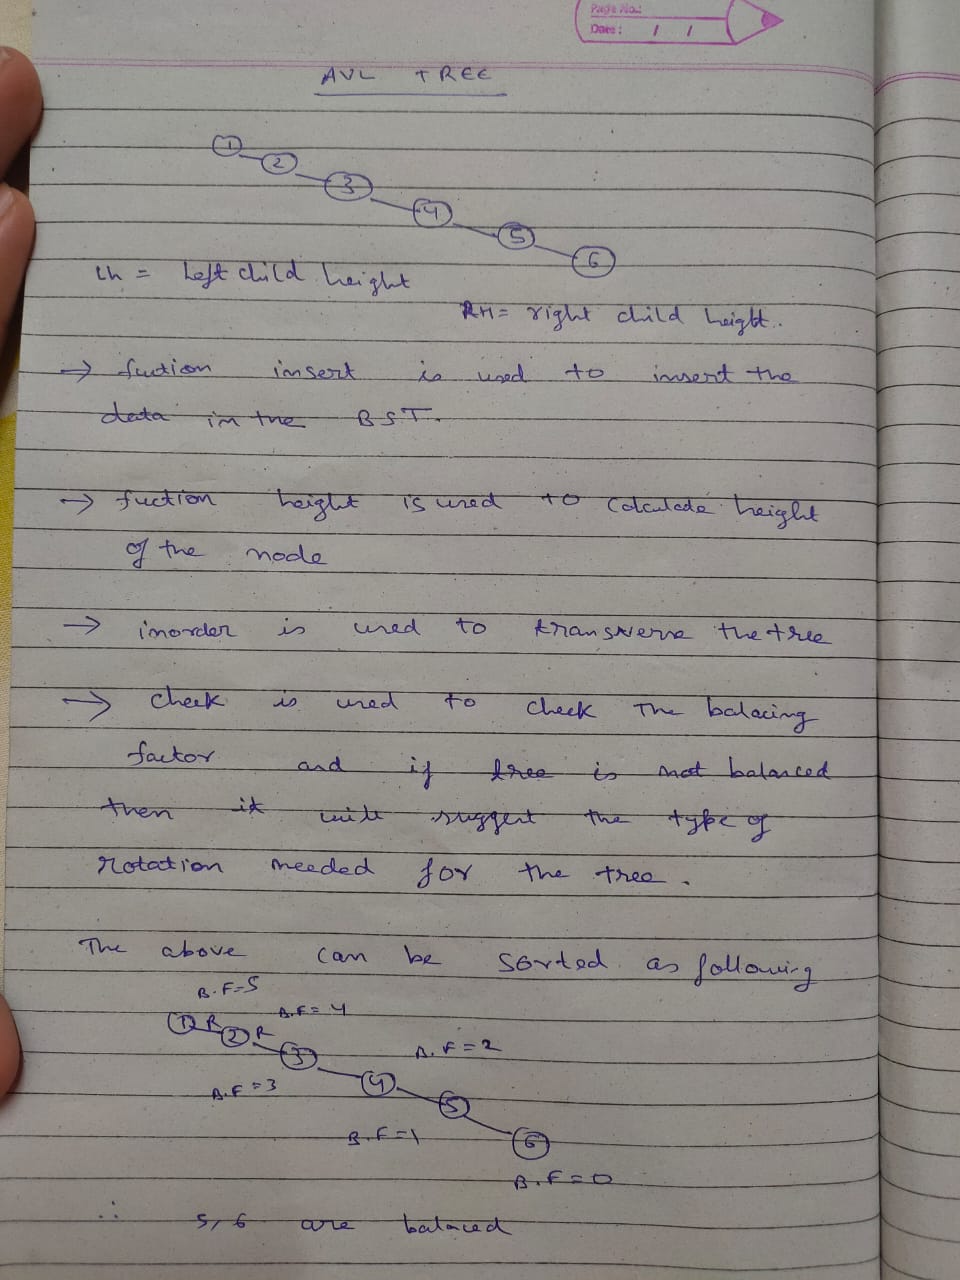 Page No.:
Date: / /
AVL TREE
1 2 3 4 5 6
Lh = Left child height
RH = right child height.
→ fuction insert is used to insert the
data in the BST.
→ fuction height is used to calculate height
of the node
→ inorder is used to transverse the tree
→ check is used to check The balacing
factor and if tree is not balanced
then it will suggest the type of
rotation needed for the tree.
The above can be sorted as following
B.F=5
B.F=4
1 R 2 R 3 4 5 6
B.F=2
B.F=3
B.F=1
B.F=0
∴ 5, 6 are balaced